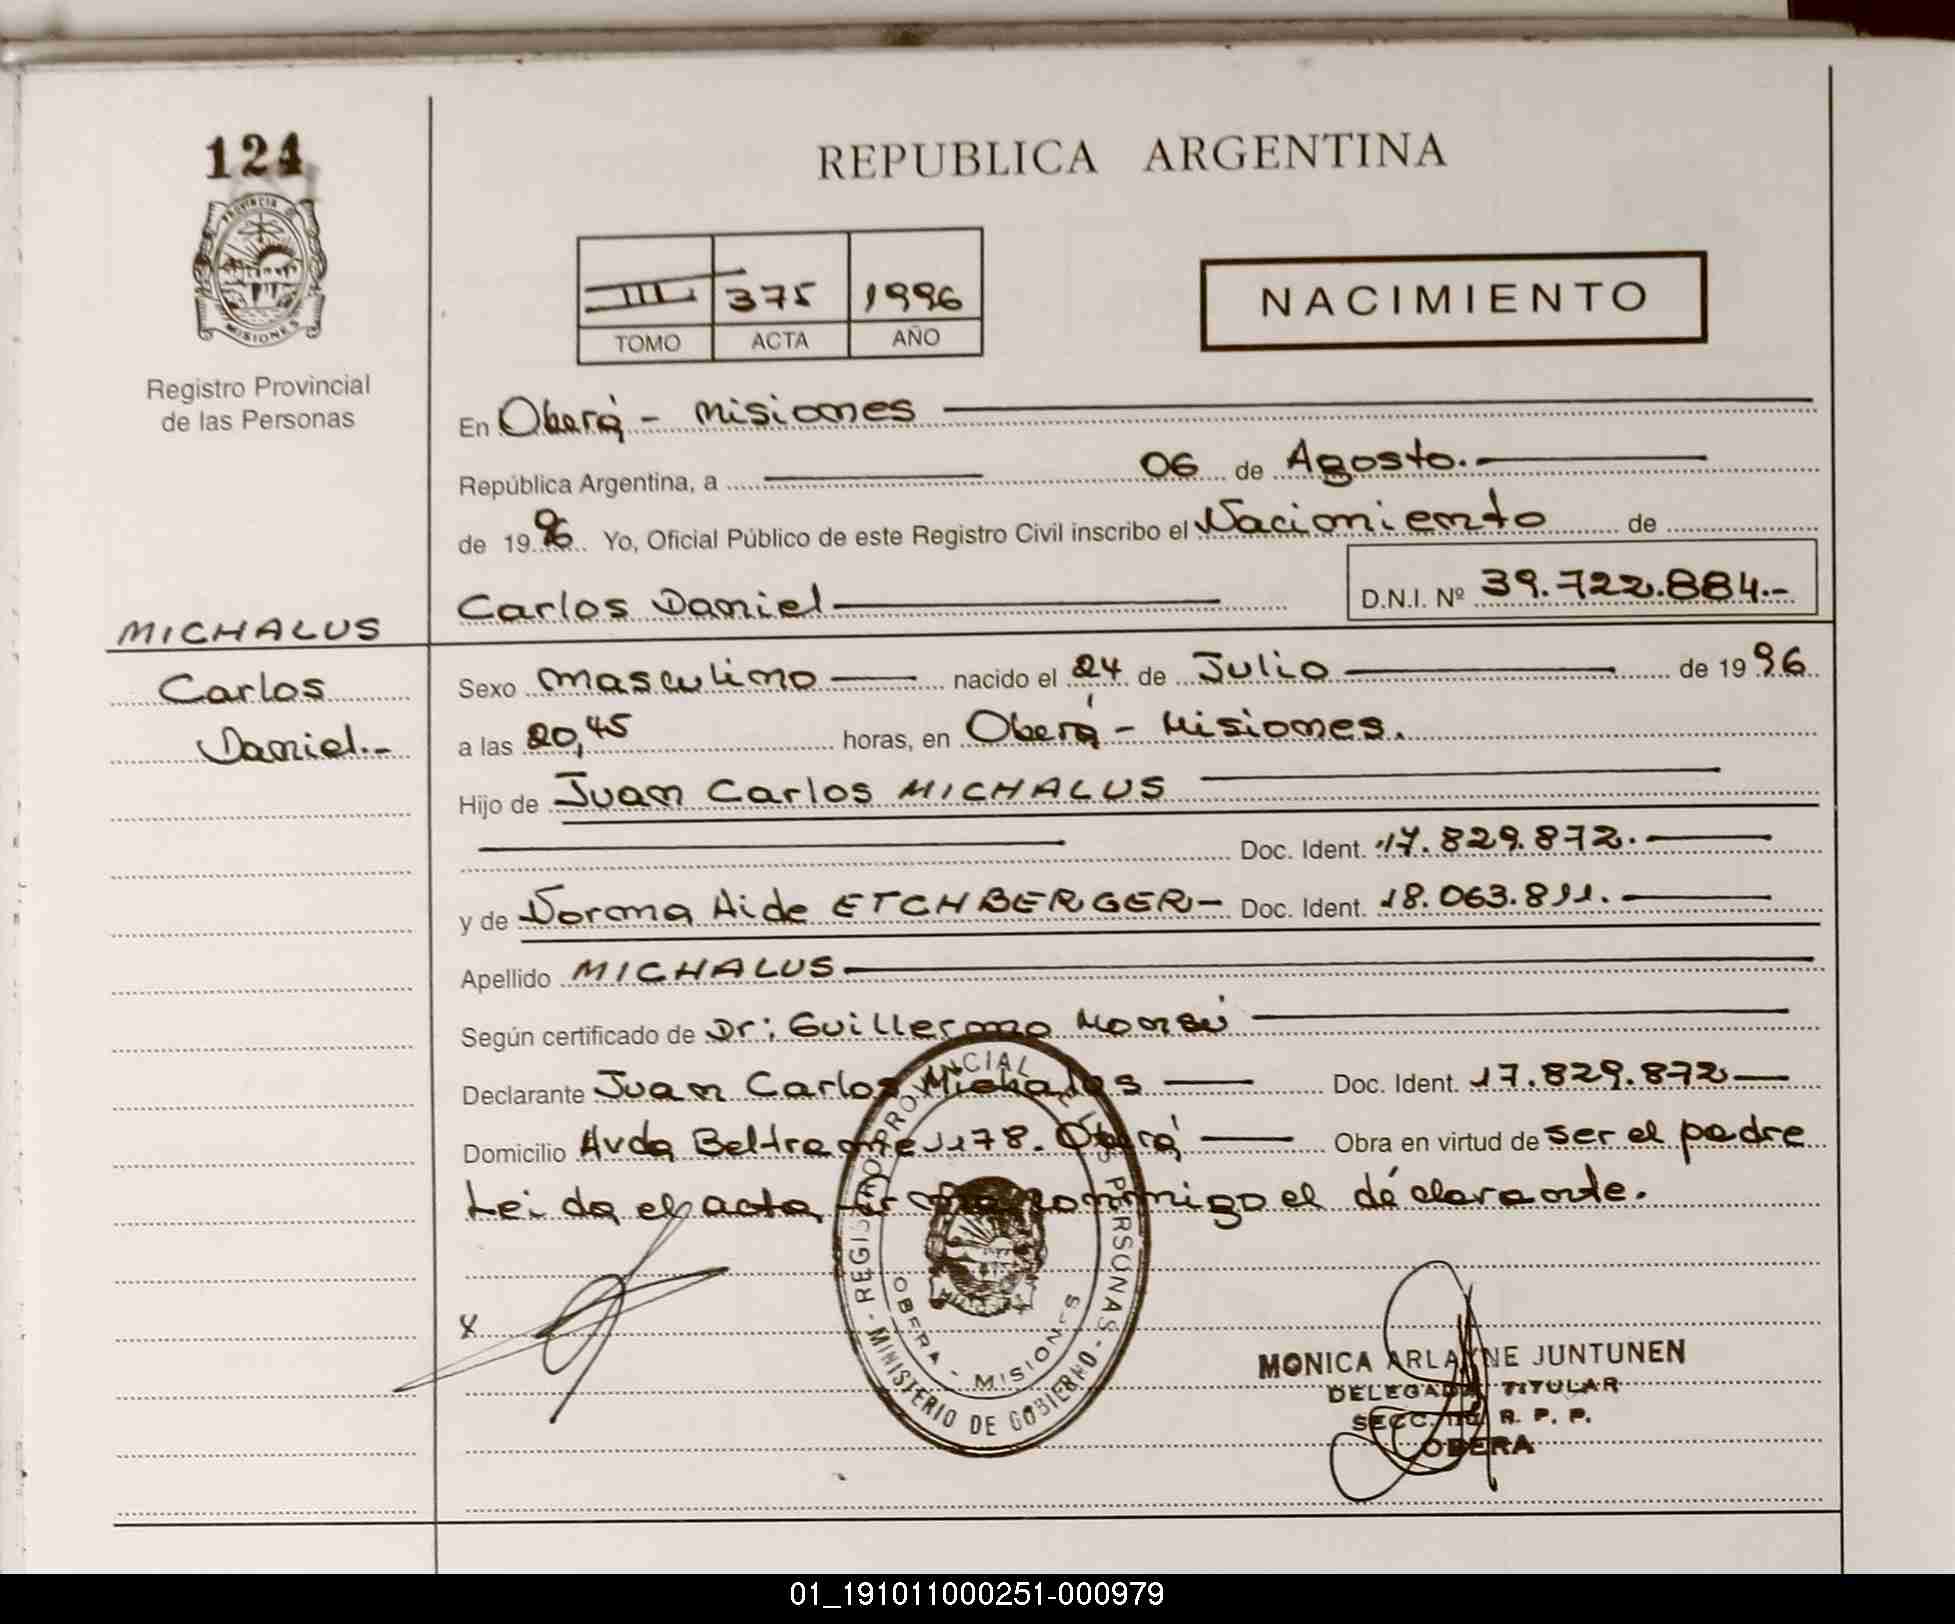 124
PROVINCIA DE
MISIONES
Registro Provincial
de las Personas
REPUBLICA ARGENTINA
III 375 1996
TOMO ACTA AÑO
NACIMIENTO
En Oberá - Misiones
República Argentina, a 06 de Agosto.
de 19 96 Yo, Oficial Público de este Registro Civil inscribo el Nacimiento de
Carlos Daniel D.N.I. Nº 39.722.884.-
MICHALUS
Carlos
Daniel.-
Sexo masculino nacido el 24 de Julio de 19 96
a las 20,45 horas, en Oberá - Misiones.
Hijo de Juan Carlos MICHALUS
Doc. Ident. 17.829.872.
y de Norma Aide ETCHBERGER - Doc. Ident. 18.063.811.
Apellido MICHALUS
Según certificado de Dr: Guillermo
Declarante Juan Carlos Michalus Doc. Ident. 17.829.872
Domicilio Avda Beltrame 1178. Oberá Obra en virtud de ser el padre
Leida el acta, firma conmigo el declarante.
X
REGISTRO PROVINCIAL DE LAS PERSONAS -
MINISTERIO DE GOBIERNO -
OBERA - MISIONES
MONICA ARLAYNE JUNTUNEN
DELEGADA TITULAR
SECC. R. P. P.
OBERA
01_191011000251-000979